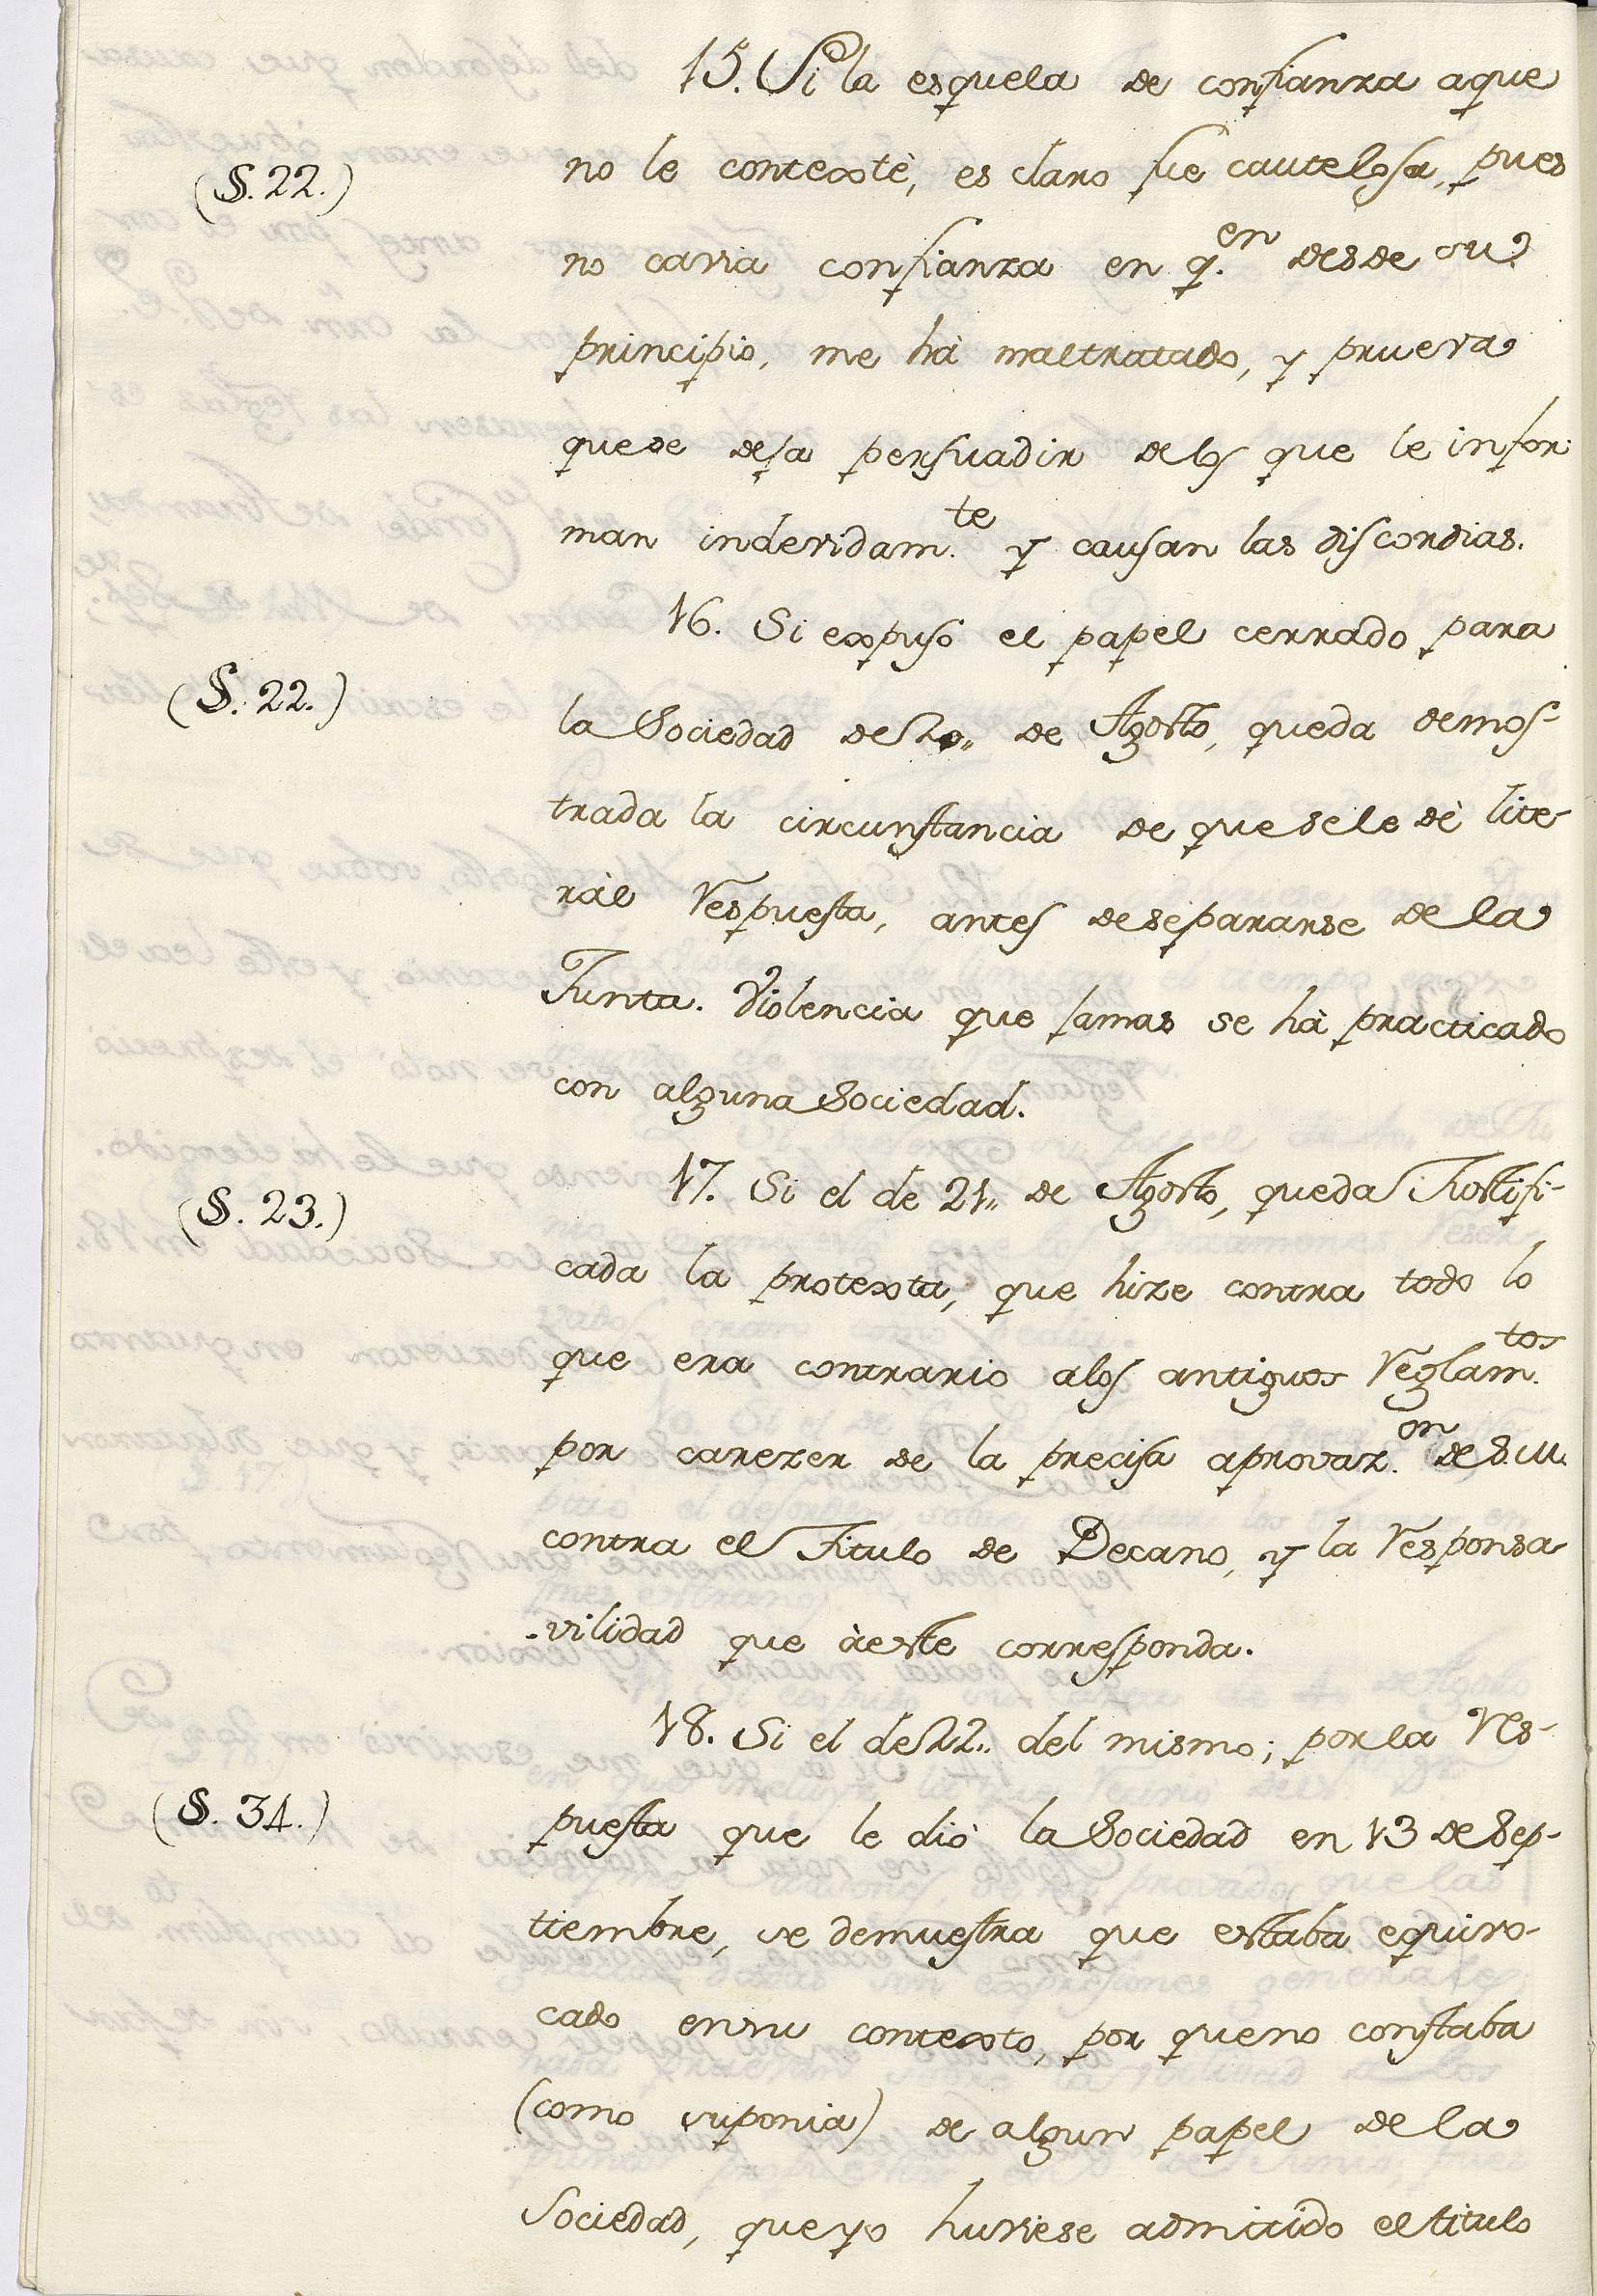 15. Si la esquela de confianza aque
(§. 22.)
no le contexté, es claro fue cautelosa, pues
no cavia confianza en q.en desde su
principio, me há maltratado, y prueva
quese desa persuadir delos que le infor-
man indevidam.te y causan las discordias.
16. Si expuso el papel cerrado para
(§. 22.)
la Sociedad de 20,, de Agosto, queda demos-
trada la circunstancia de que sele dé lite-
rál respuesta, antes desepararse de la
Junta. Violencia que jamas se há practicado
con alguna Sociedad.
17. Si el de 21,, de Agosto, queda Justifi-
(§. 23.)
cada la protexta, que hize contra todo lo
que era contrario alos antiguos reglam.tos
por carezer de la precisa aprovaz.on de S.M.
contra el Titulo de Decano, y la responsa-
-vilidad que áeste corresponda.
18. Si el de 22,, del mismo; por la res-
(§. 34.)
puesta que le dió la Sociedad en 13 de Sep-
tiembre, se demuestra que estaba equivo-
cado ensu contexto, por queno constaba
(como suponia) de algun papel de la
Sociedad, queyo huviese admitido el titulo